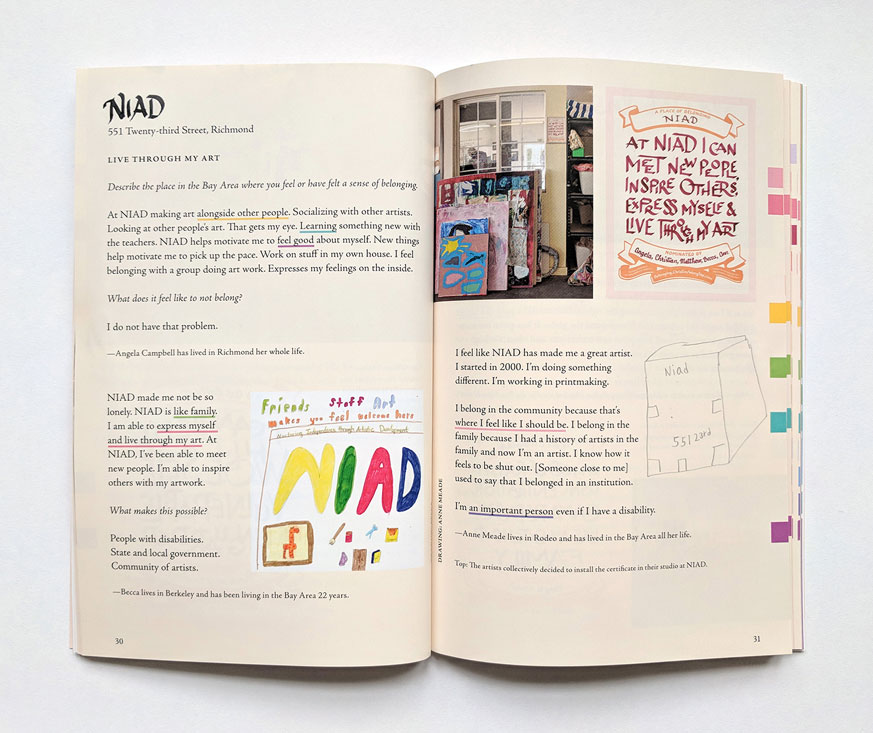 NIAD
551 Twenty-third Street, Richmond
LIVE THROUGH MY ART
Describe the place in the Bay Area where you feel or have felt a sense of belonging.
At NIAD making art alongside other people. Socializing with other artists.
Looking at other people's art. That gets my eye. Learning something new with
the teachers. NIAD helps motivate me to feel good about myself. New things
help motivate me to pick up the pace. Work on stuff in my own house. I feel
belonging with a group doing art work. Expresses my feelings on the inside.
What does it feel like to not belong?
I do not have that problem.
—Angela Campbell has lived in Richmond her whole life.
NIAD made me not be so
lonely. NIAD is like family.
I am able to express myself
and live through my art. At
NIAD, I've been able to meet
new people. I'm able to inspire
others with my artwork.
What makes this possible?
People with disabilities.
State and local government.
Community of artists.
—Becca lives in Berkeley and has been living in the Bay Area 22 years.
Friends Staff Art
makes you feel welcome here
Nurturing Independence through Artistic Development
NIAD
30
A PLACE OF BELONGING
NIAD
AT NIAD I CAN
MEET NEW PEOPLE,
INSPIRE OTHERS,
EXPRESS MYSELF &
LIVE THROUGH MY ART
NOMINATED BY
Angela, Christian, Matthew, Becca, Ann
I feel like NIAD has made me a great artist.
I started in 2000. I'm doing something
different. I'm working in printmaking.
I belong in the community because that's
where I feel like I should be. I belong in the
family because I had a history of artists in the
family and now I'm an artist. I know how it
feels to be shut out. [Someone close to me]
used to say that I belonged in an institution.
I'm an important person even if I have a disability.
—Anne Meade lives in Rodeo and has lived in the Bay Area all her life.
Top: The artists collectively decided to install the certificate in their studio at NIAD.
Niad
551 23rd
DRAWING: ANNE MEADE
31